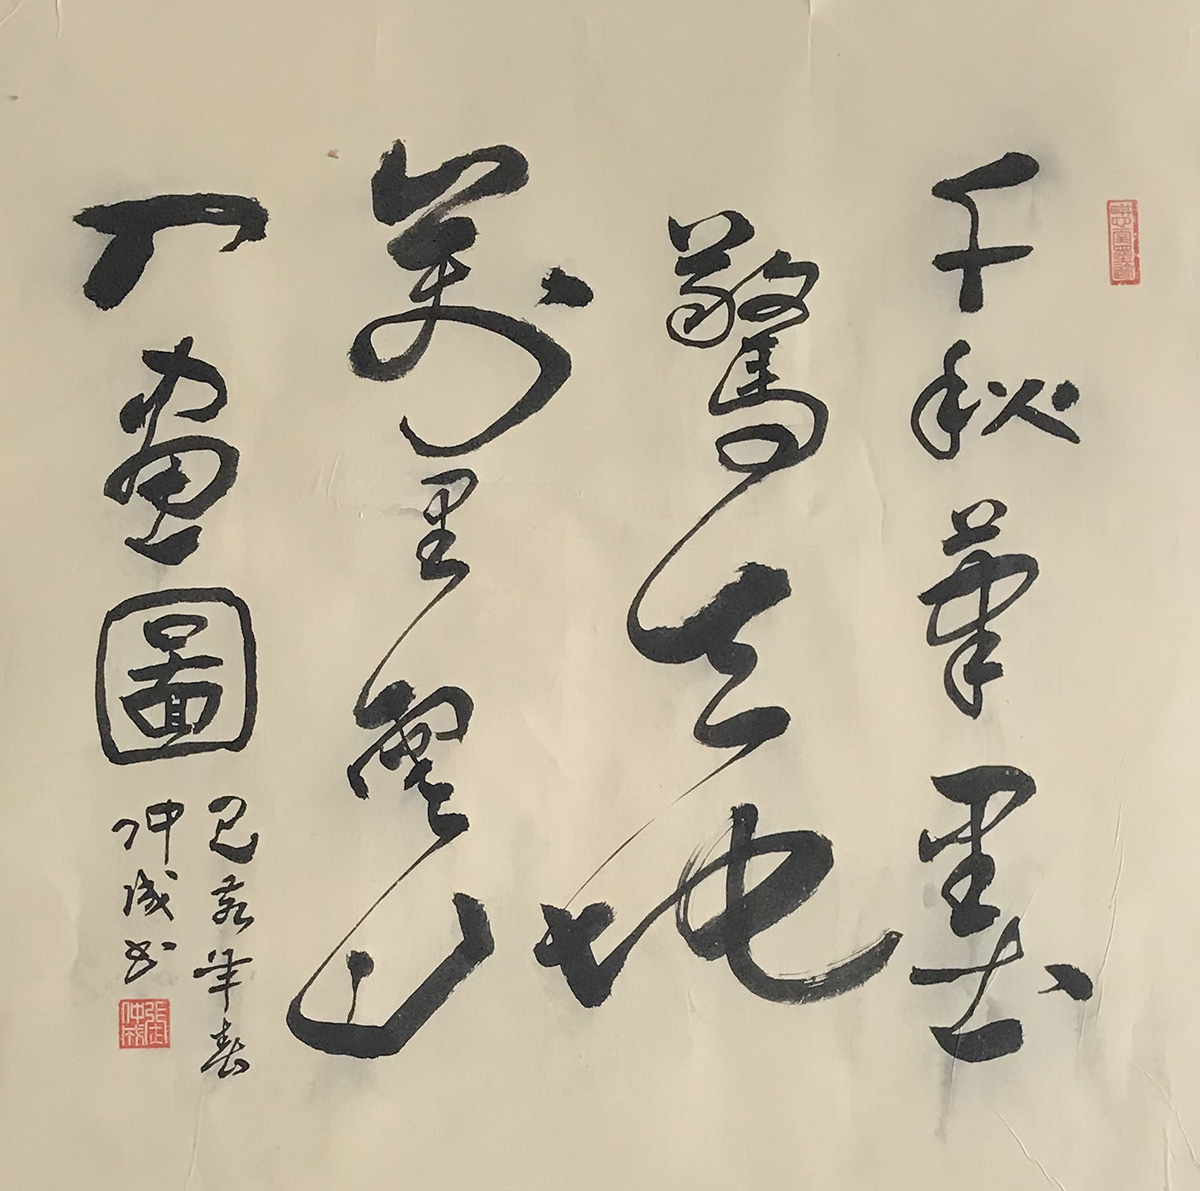 千秋筆墨
驚天地
萬里雲山
入畫圖
己亥年春
仲成书